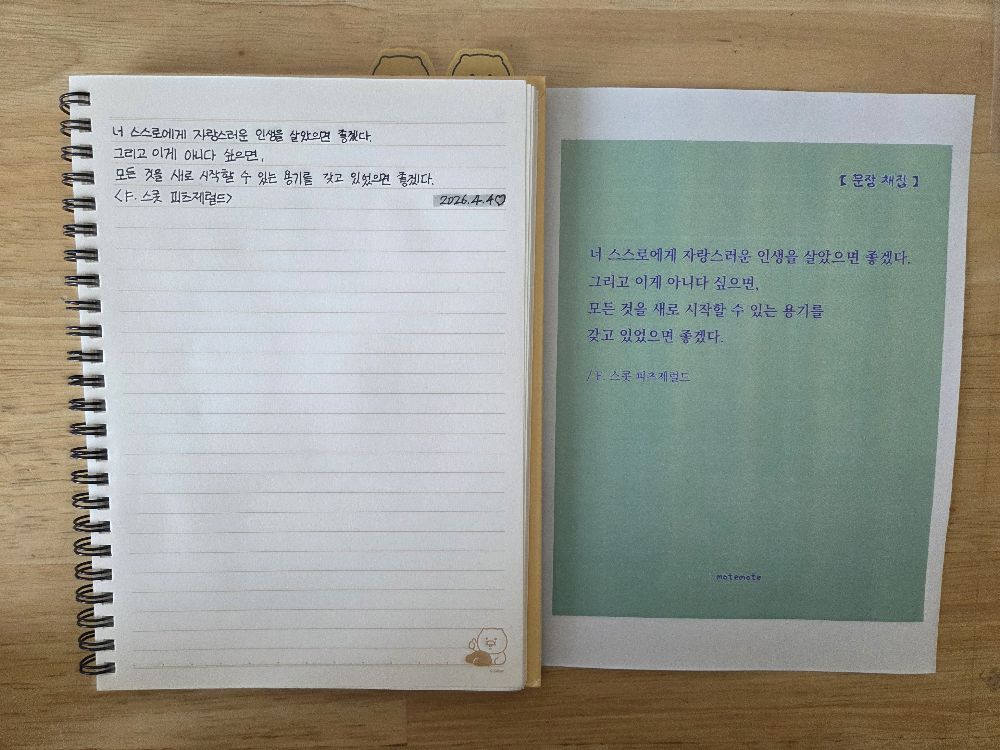 너 스스로에게 자랑스러운 인생을 살았으면 좋겠다.
그리고 이게 아니다 싶으면,
모든 것을 새로 시작할 수 있는 용기를 갖고 있었으면 좋겠다.
<F. 스콧 피츠제럴드>
2026.4.4♡
【 문장 채집 】
너 스스로에게 자랑스러운 인생을 살았으면 좋겠다.
그리고 이게 아니다 싶으면,
모든 것을 새로 시작할 수 있는 용기를
갖고 있었으면 좋겠다.
/ F. 스콧 피츠제럴드
motemote